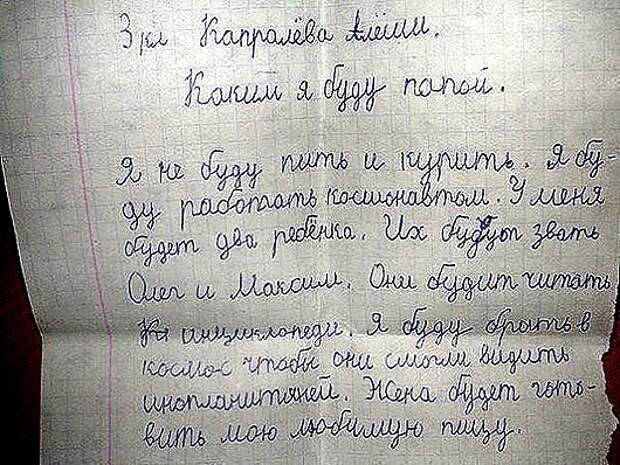 3 кл Капралёва Алёши.
Каким я буду папой.
Я не буду пить и курить. Я бу-
ду работать космонавтом. У меня
будет два ребёнка. Их будут звать
Олег и Максим. Они будит читать
инциклопеди. Я буду брать в
космос чтобы они смогли видить
инопланитяней. Жена будет гото-
вить мою любимую пищу.